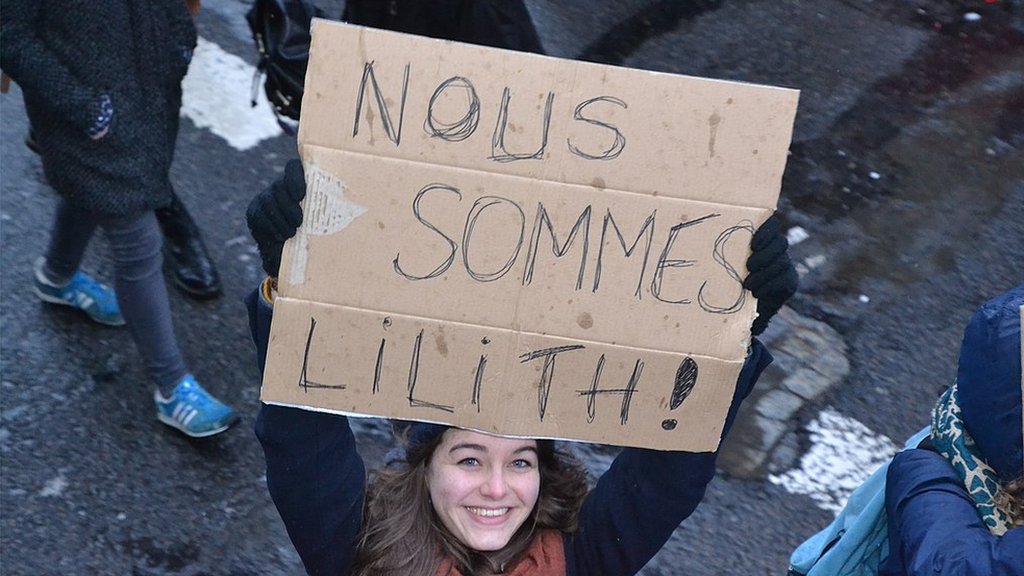 NOUS
SOMMES
LiLiTH!